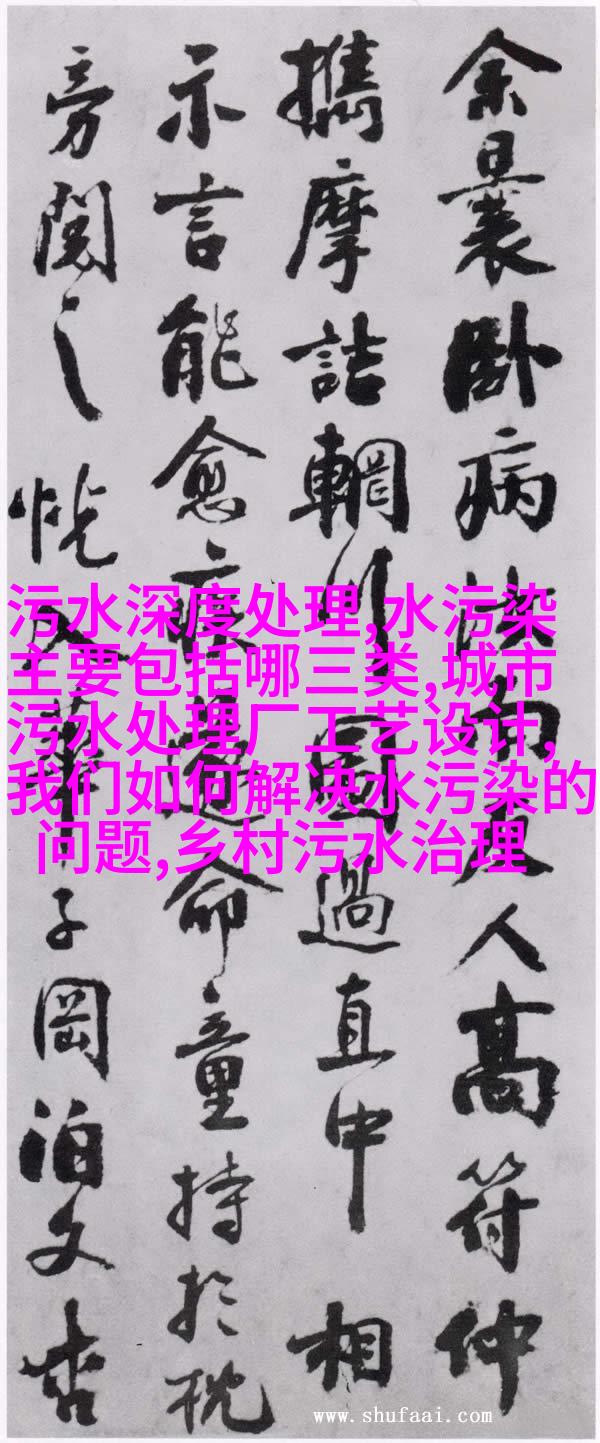 余曩卧病汝南友人高符仲
攜摩詰輞川圖過直中相
示言能愈疾遂命童持於枕
旁閱之恍入華子岡泊文杏
污水深度处理,水污染
主要包括哪三类,城市
污水处理厂工艺设计,
我们如何解决水污染的
问题,乡村污水治理
www.shufaai.com